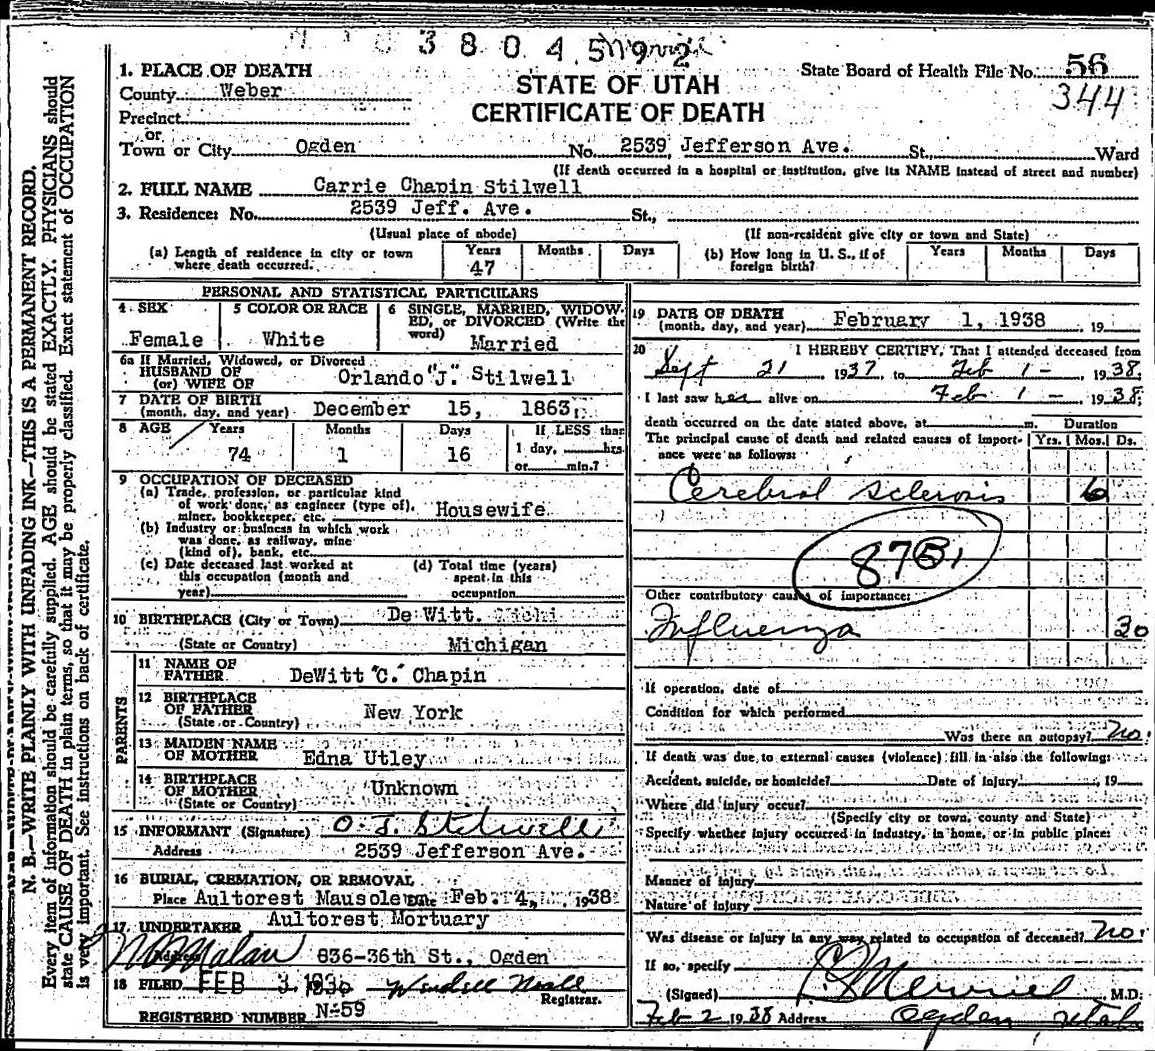 380459 2
1. PLACE OF DEATH
County Weber
Precinct
or
Town or City Ogden No. 2539 Jefferson Ave. St., Ward
STATE OF UTAH
CERTIFICATE OF DEATH
State Board of Health File No. 56
344
(If death occurred in a hospital or institution, give its NAME instead of street and number)
2. FULL NAME Carrie Chapin Stilwell
3. Residence: No. 2539 Jeff. Ave. St.,
(Usual place of abode) (If non-resident give city or town and State)
(a) Length of residence in city or town where death occurred. Years 47 Months Days
(b) How long in U. S., if of foreign birth? Years Months Days
PERSONAL AND STATISTICAL PARTICULARS
4 SEX Female
5 COLOR OR RACE White
6 SINGLE, MARRIED, WIDOWED, or DIVORCED (Write the word) Married
6a If Married, Widowed, or Divorced
HUSBAND OF
(or) WIFE OF Orlando "J." Stilwell
7 DATE OF BIRTH
(month, day, and year) December 15, 1863
8 AGE Years 74 Months 1 Days 16 If LESS than 1 day, hrs. or min.?
9 OCCUPATION OF DECEASED
(a) Trade, profession, or particular kind
of work done, as engineer (type of),
miner, bookkeeper, etc. Housewife
(b) Industry or business in which work
was done, as railway, mine
(kind of), bank, etc.
(c) Date deceased last worked at
this occupation (month and
year)
(d) Total time (years)
spent in this
occupation
10 BIRTHPLACE (City or Town) De Witt. Michi
(State or Country) Michigan
PARENTS
11 NAME OF
FATHER DeWitt "C." Chapin
12 BIRTHPLACE
OF FATHER New York
(State or Country)
13 MAIDEN NAME
OF MOTHER Edna Utley
14 BIRTHPLACE
OF MOTHER Unknown
(State or Country)
15 INFORMANT (Signature) O. J. Stilwell
Address 2539 Jefferson Ave.
16 BURIAL, CREMATION, OR REMOVAL
Place Aultorest Mausoleum Date Feb. 4, 1938
17. UNDERTAKER Aultorest Mortuary
Address 836-36th St., Ogden
18 FILED FEB 3 1938 Wendell Noall
Registrar.
REGISTERED NUMBER N-59
19 DATE OF DEATH
(month, day, and year) February 1, 1938 , 19
20 I HEREBY CERTIFY, That I attended deceased from
Sept 21 1937, to Feb 1 - , 1938,
I last saw her alive on Feb 1 - , 1938;
death occurred on the date stated above, at m. Duration
The principal cause of death and related causes of importance were as follows: Yrs. Mos. Ds.
Cerebral sclerosis 6
Other contributory causes of importance:
Influenza 30
If operation, date of
Condition for which performed
Was there an autopsy? No.
If death was due to external causes (violence) fill in also the following:
Accident, suicide, or homicide? Date of injury , 19
Where did injury occur?
(Specify city or town, county and State)
Specify whether injury occurred in industry, in home, or in public place:
Manner of injury
Nature of injury
Was disease or injury in any way related to occupation of deceased? No.
If so, specify
(Signed) M.D.
Feb 2 1938 Address Ogden, Utah
N. B.—WRITE PLAINLY WITH UNFADING INK—THIS IS A PERMANENT RECORD.
Every item of information should be carefully supplied. AGE should be stated EXACTLY. PHYSICIANS should
state CAUSE OF DEATH in plain terms, so that it may be properly classified. Exact statement of OCCUPATION
is very important. See instructions on back of certificate.